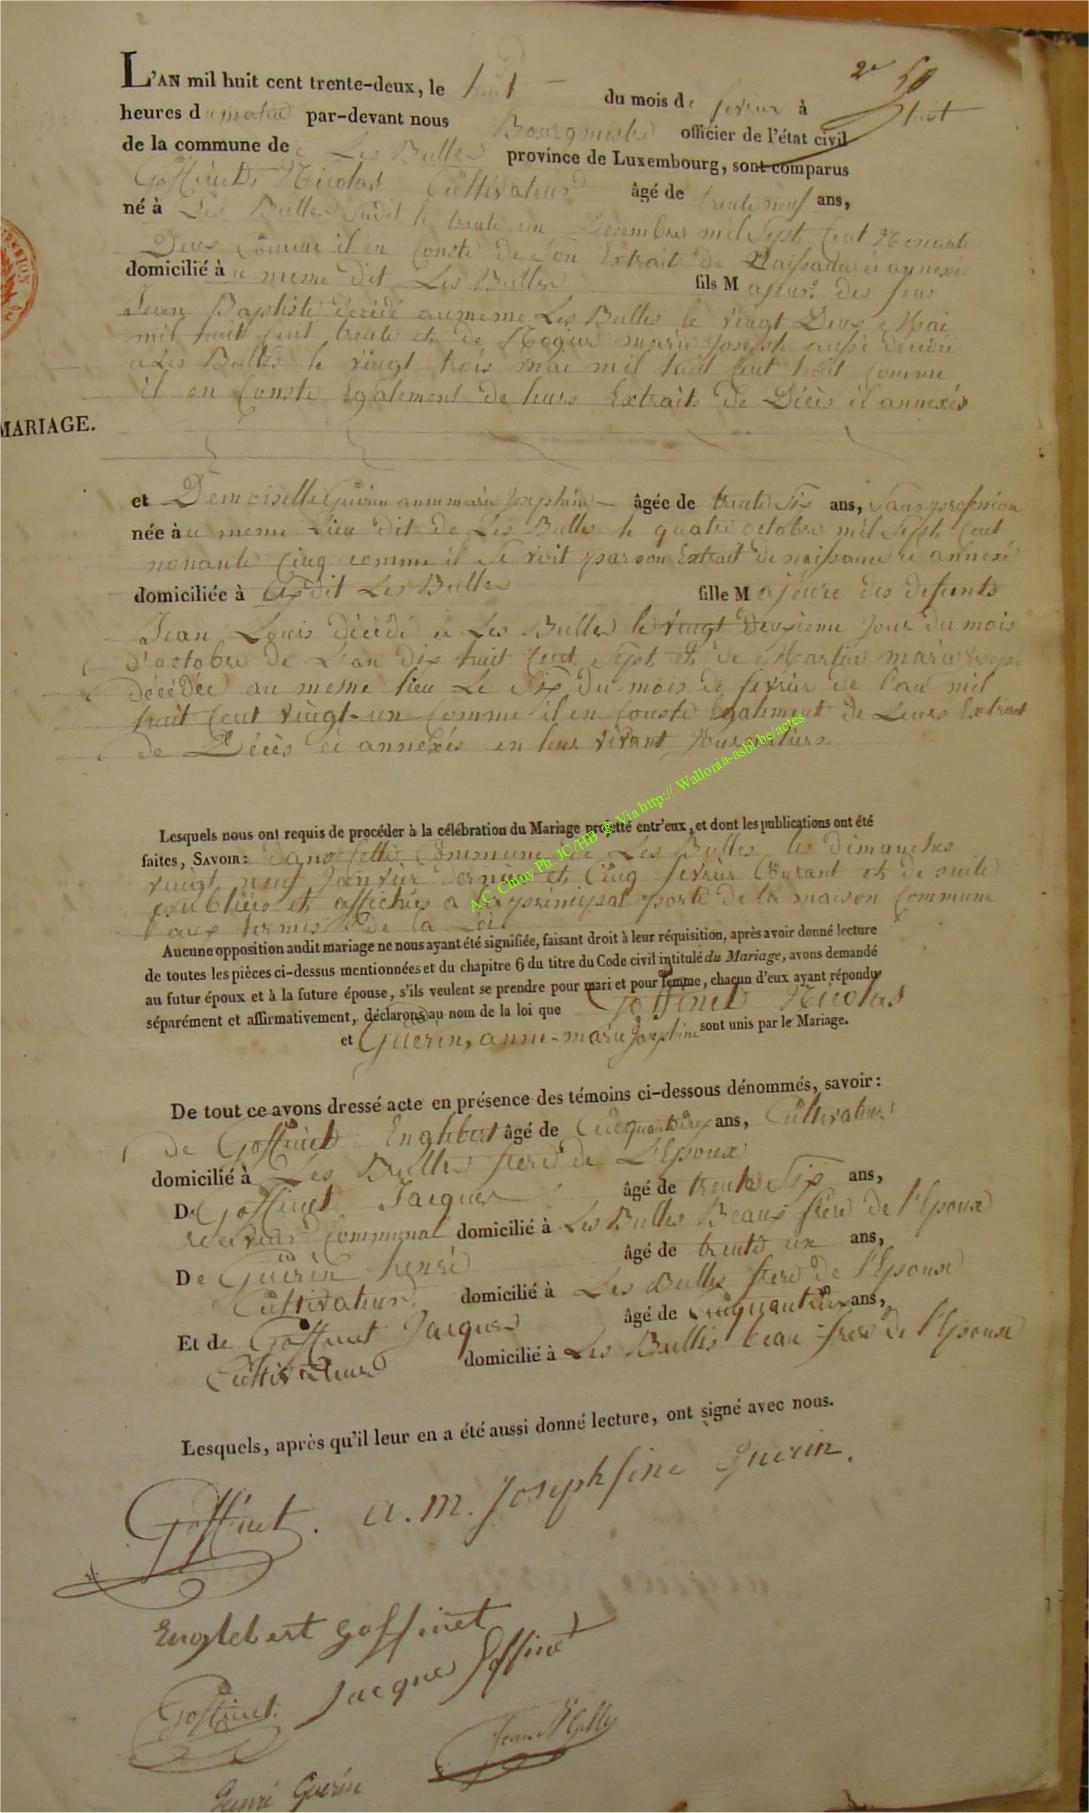 2e 50
L'AN mil huit cent trente-deux, le huit du mois de fevrier à huit
heures du matin par-devant nous Bourgmestre officier de l'état civil
de la commune de Les Bulles province de Luxembourg, sont comparus
Goffinet, Nicolas Cultivateur âgé de trente neuf ans,
né à Les Bulles susdit le trente un Decembre mil Sept Cent Nonante
Deux Comme il en Conste de Son Extrait de Naissance ci annexé
domicilié à u meme dit Les Bulles fils Majeur des feus
Jean Baptiste décédé au meme Les Bulles le vingt Deux Mai
mil huit Cent trente et de Nogur marie Joseph aussi decedée
a Les Bulles le vingt trois mai mil huit Cent huit Comme
il en Conste Egalement de leurs Extraits de Décès ci annexés
MARIAGE.
et Demoiselle Guérin anne marie Josephine âgée de trente Six ans, Sans profession
née à u meme Lieu dit de Les Bulles le quatre octobre mil Sept Cent
nonante Cinq comme il se voit par son Extrait de naissance ci annexé
domiciliée à dit Les Bulles fille Majeure des defunts
Jean Louis décédé à Les Bulles le vingt deuxieme Jour du mois
d'octobre de L'an dix huit Cent Sept et de Martin marie
décédée au meme lieu Le Six du mois de fevrier de l'an mil
huit Cent vingt-un Comme il en Conste Egalement de Leurs Extrait
de Décès ci annexés en leur vivant Journaliers.
Lesquels nous ont requis de procéder à la célébration du Mariage projetté entr'eux, et dont les publications ont été
faites, SAVOIR: dans cette Commune de Les Bulles les dimanches
vingt neuf Janvier dernier et Cinq fevrier Courant et de suite
publiées et affichées a la principal porte de la maison Commune
aux termes de la Loi
Aucune opposition audit mariage ne nous ayant été signifiée, faisant droit à leur réquisition, après avoir donné lecture
de toutes les pièces ci-dessus mentionnées et du chapitre 6 du titre du Code civil intitulé du Mariage, avons demandé
au futur époux et à la future épouse, s'ils veulent se prendre pour mari et pour femme, chacun d'eux ayant répondu
séparément et affirmativement, déclarons au nom de la loi que Goffinet Nicolas
et Guérin, anne-marie Josephine sont unis par le Mariage.
De tout ce avons dressé acte en présence des témoins ci-dessous dénommés, savoir:
de Goffinet Englebert âgé de Cinquante deux ans, Cultivateur
domicilié à Les Bulles frere de L'Epoux
De Goffinet Jacques âgé de trente Six ans,
receveur Communal domicilié à Les Bulles Beaux frère de l'Epoux
De Guérin henri âgé de trente un ans,
Cultivateur domicilié à Les Bulles frere de l'Epouse
Et de Goffinet Jacques âgé de ans,
Cultivateur domicilié à Les Bulles beau frere de l'Epouse
Lesquels, après qu'il leur en a été aussi donné lecture, ont signé avec nous.
Goffinet. a. m. Josephfine Guerin.
Englebert goffinet
Goffinet. Jacques Goffinet
Henri Guérin
A.C. Chiny Ph. JC/HB © Via http:// Wallonia-asbl.be/actes